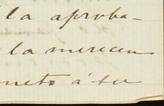 la aproba-
la merecen
neto á su